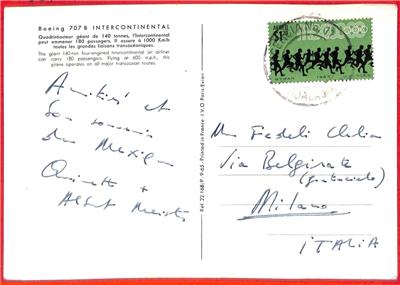 Boeing 707B INTERCONTINENTAL
Quadriréacteur géant de 140 tonnes, l'Intercontinental
peut emmener 180 passagers. Il assure à 1000 Km/h
toutes les grandes liaisons transocéaniques.
The giant 140-ton four-engined Intercontinental jet airliner
can carry 180 passengers. Flying at 600 m.p.h., this
plane operates on all major transocean routes.
Amitiés et
bon souvenir
du Mexique
Albert
Réf. 22.168/P. 9-65 - Printed in France - I.V.O Paris-Evian
Via Belgirate
Milano
ITALIA